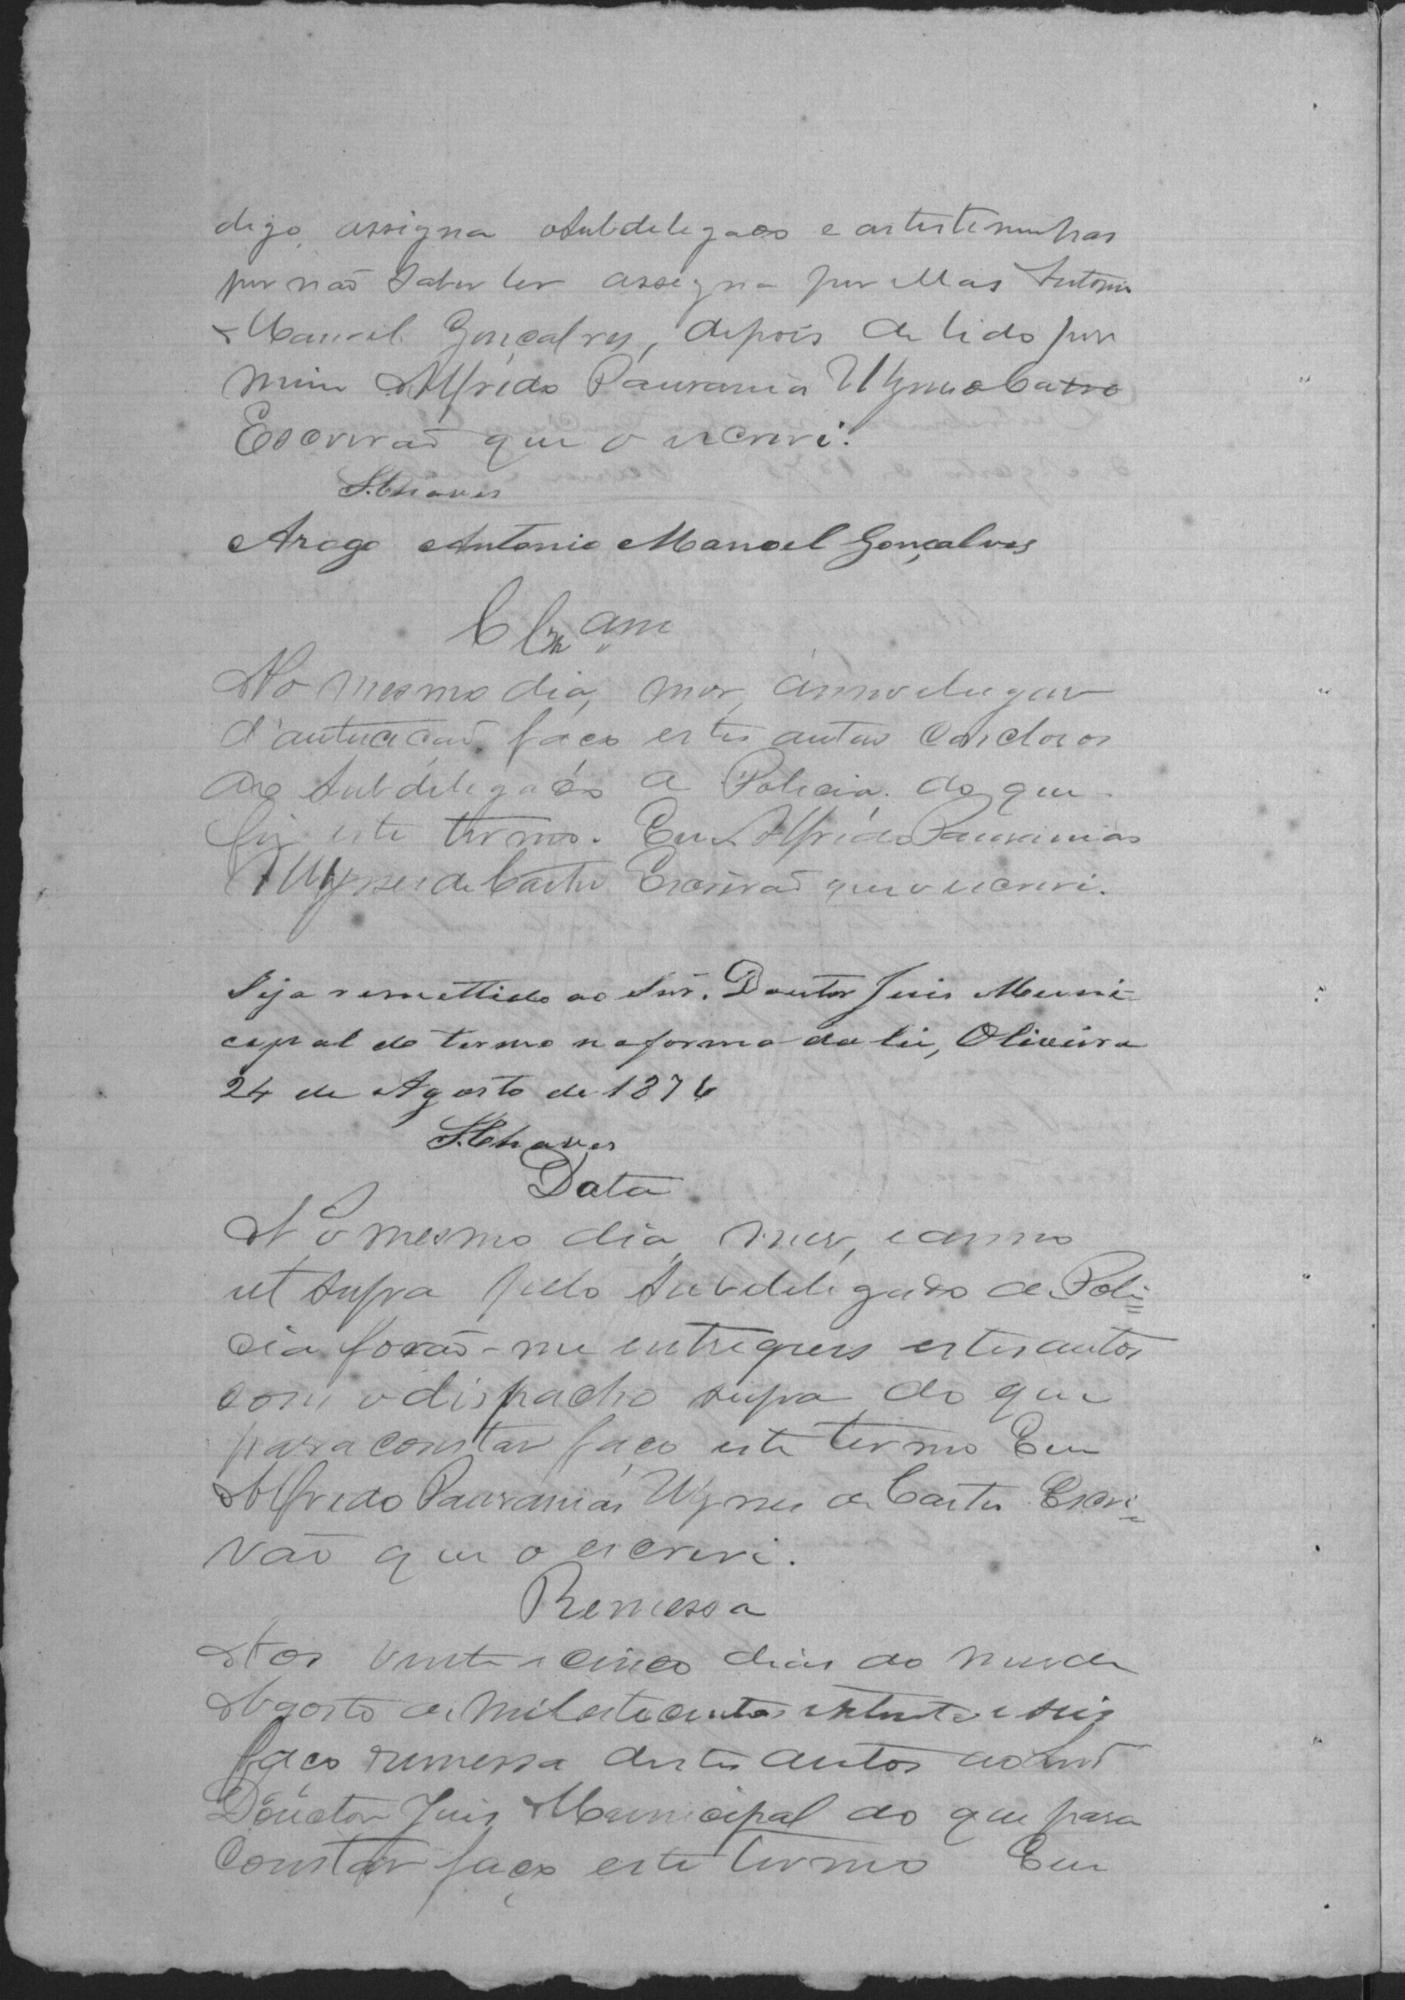 digo, assigna o Subdelegado e as testemunhas
por não saber ler assigna por ellas Antonio
Manoel Gonçalves, depois de lido por
mim Alfrêdo Pauranias Wynes de Castro
Escrivaõ que o escrevi.
S. Chaves
Arogo Antonio Manoel Gonçalves
Clzam
No mesmo dia, mes, anno e lugar
d'autuaçaõ, faço estes autos conclosos
ao Subdelegado de Policia, do que
fiz este termo. Eu Alfrêdo Pauranias
Wynes de Castro Escrivaõ que o escrevi.
Seja remettido ao Snr. Doutor Juis Muni-
cipal do termo na forma da lei, Oliveira
24 de Agosto de 1876
S. Chaves
Data
No mesmo dia, mes, e anno
ut supra pelo Subdelegado de Poli=
cia foraõ-me entregues estes autos
com o dispacho supra, do que
para constar faço este termo Eu
Alfredo Pauranias Wynes de Castro Escri=
vaõ que o escrevi.
Remessa
Aos vinte e cinco dias do mes de
Agosto de mil oitocentos e setenta e seis
faço remessa destes autos ao Snr
Douctor Juis Municipal do que para
constar faço este termo Eu